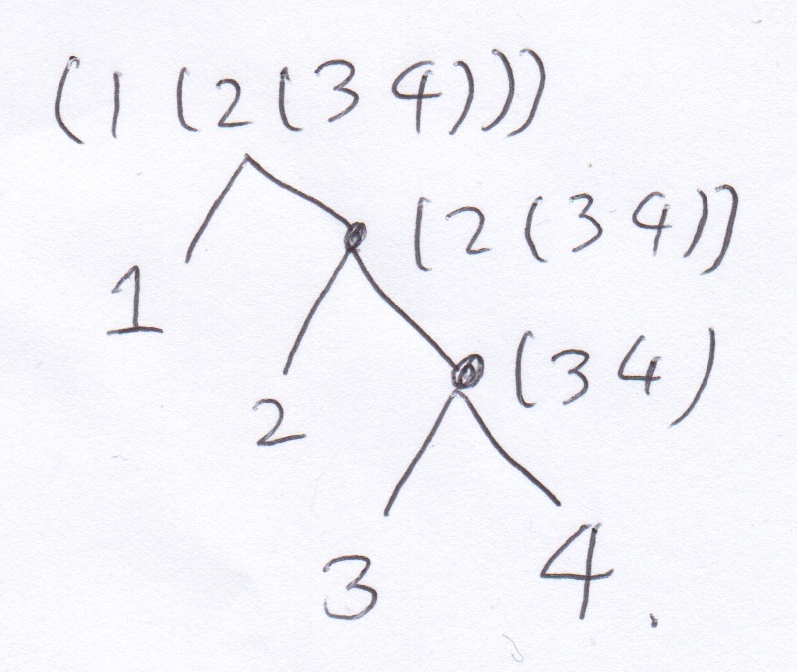 (1 (2 (3 4)))
(2 (3 4))
1
(3 4)
2
3 4.